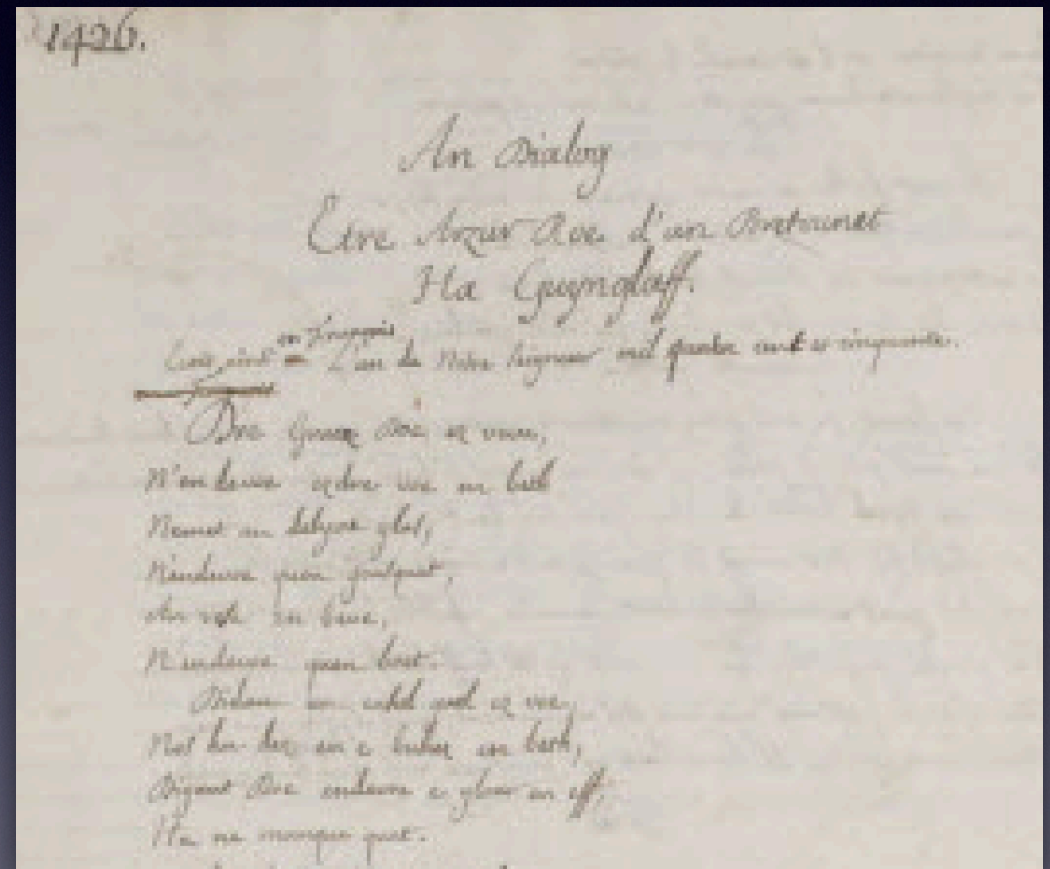 1426.
An Dialog
Etre Arzur Roe d'an Bretounet
Ha Guynglaff.
en françois
L'an de Notre Seigneur mil quatre cent et cinquante.
Dre Doe ez voue,
N'en devoe oz voe en beth
Nemet an delyou glas,
N'endevoe quen
N'endevoe quen boet.
Didan un cabel ez voe,
Noz ha dez en e buhez en beth,
Digant Doe endevoe e gloar en eff,
Ha ne manque quet.